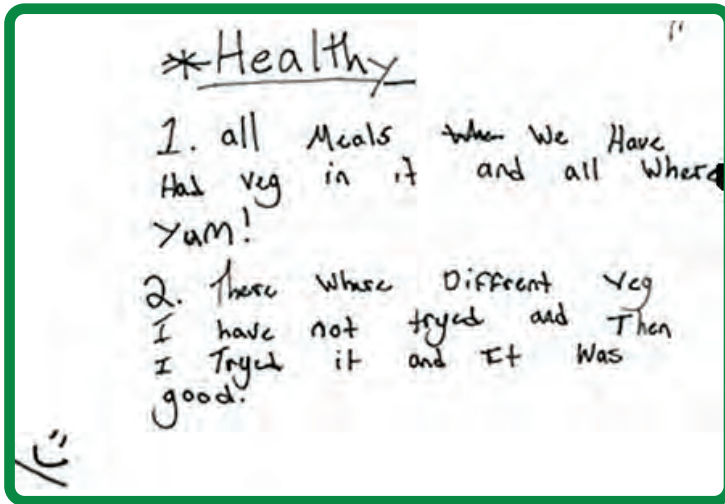 *Healthy
1. all Meals when We Have
Had veg in it and all Where
Yum!
2. There Where Diffrent Veg
I have not tryed and Then
I Tryed it and It Was
good.